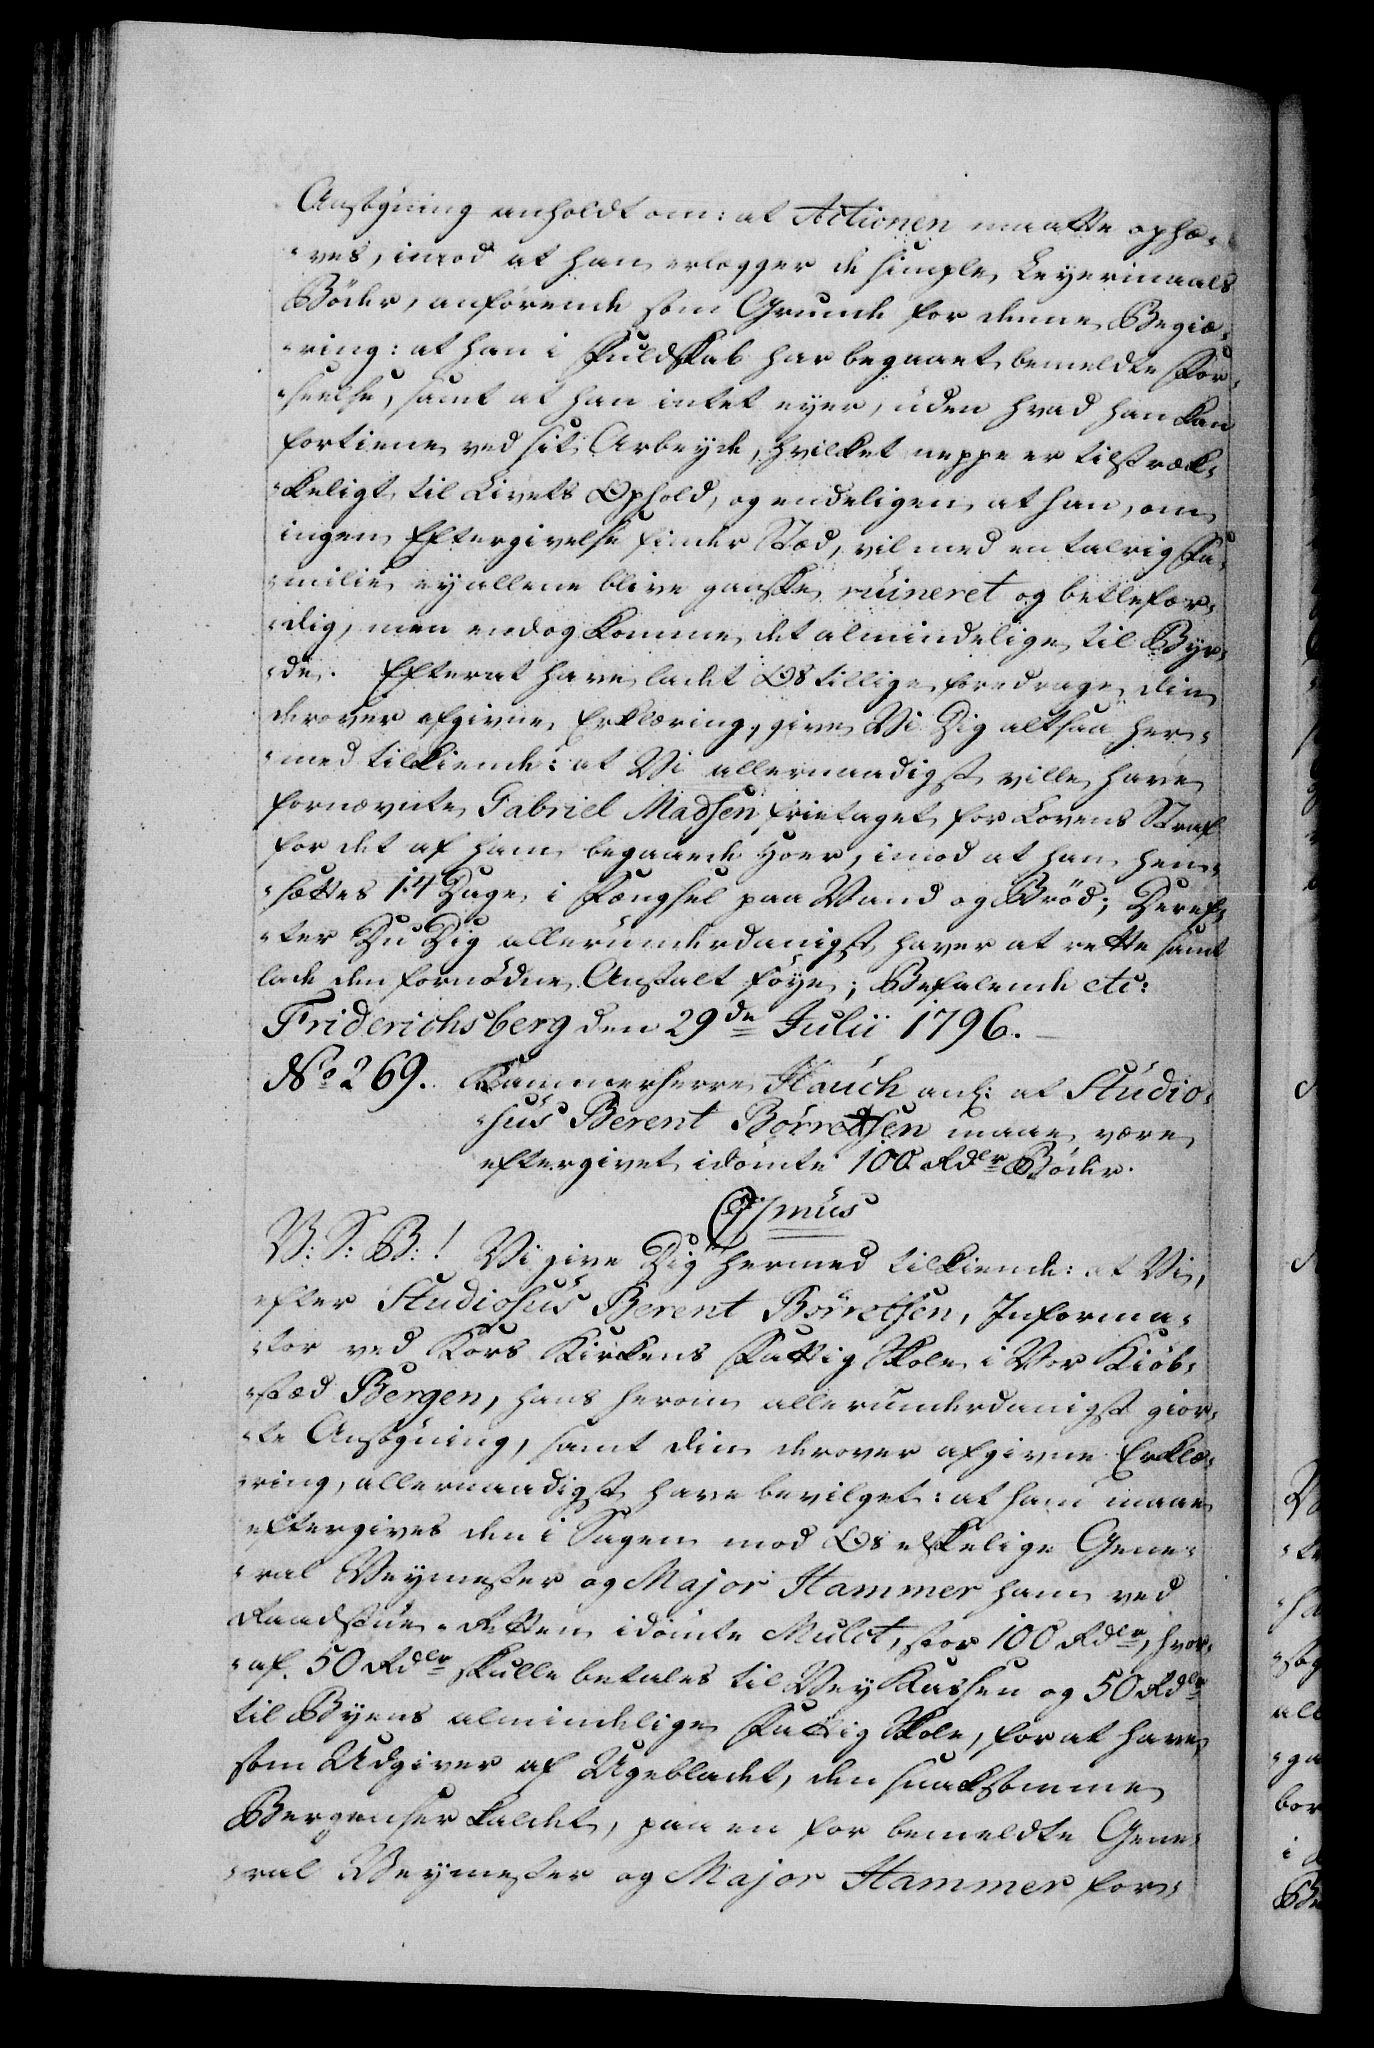 Ansøgning anholdt om: at Actionen maatte ophæ-
-ves, imod at han erlægger de simple Leyermaals
Bøder, anførende som Grunde for denne Begiæ-
-ring: at han i Fuldskab har begaaet bemeldte For-
-seelse, samt at han intet eyer, uden hvad han kan
fortiene ved sit Arbeyde, hvilket neppe er tilstræk-
-keligt til Livets Ophold, og endeligen at han, om
ingen Eftergivelse finder Stæd, vil med en talrig Fa-
-milie ey allene blive ganske ruineret og betlefær-
-dig, men endog komme det almindelige til Byr-
-de. Efterat have ladet Os tillige foredrage din
derover afgivne Erklæring, give Vi Dig altsaa her-
-med tilkiende: at Vi allernaadigst ville have
fornævnte Gabriel Madsen fritaget for Lovens Straf
for det af ham begaaede Hoer, imod at han hen-
-sættes 14 Dage i Fængsel paa Vand og Brød; Deref-
-ter Du Dig allerunderdanigst haver at rette samt
lade den fornødne Anstalt føye; Befalende etc:
Friderichsberg den 29de Julii 1796.
No 269. Kammerherre Hauch anl: at Studio-
-sus Berent Börretsen maae være
eftergivet idømte 100 Rdlr Bøder.
C7mus
V: S: B:! Vi give Dig hermed tilkiende: at Vi,
efter Studiosus Berent Börretsen, Informa-
-tor ved Kors Kirkens Fattig Skole i Vor Kiøb-
-stæd Bergen, hans herom allerunderdanigst gior-
-te Ansøgning, samt din derover afgivne Erklæ-
-ring, allernaadigst have bevilget: at ham maae
eftergives den i Sagen mod Os elskelige Gene-
-ral Veymester og Major Hammer ham ved
Raadstue-Retten idømte Mulct, stor 100 Rdlr, hvor-
-af 50 Rdlr skulle betales til Vey Kassen og 50 Rdlr
til Byens almindelige Fattig Skole, for at have
som Udgiver af Ugebladet, den snaksomme
Bergenser kaldet, paa en for bemeldte Gene-
-ral Veymester og Major Hammer for-